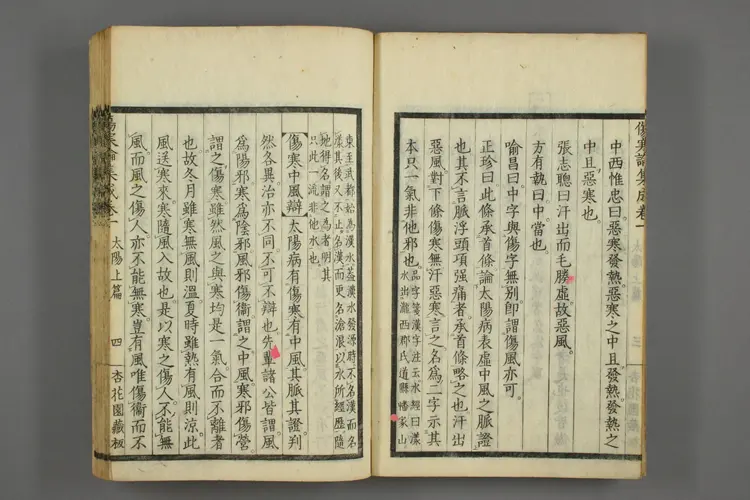 傷寒論集成卷一
中西惟忠曰惡寒發熱惡寒之中且發熱發熱之
中且惡寒也
張志聰曰汗出而毛腠虛故惡風
方有執曰中當也
喻昌曰中字與傷字無別卽謂傷風亦可
正珍曰此條承首條論太陽病表虛中風之脈證
也其不言脈浮頭項强痛者承首條略之也汗出
惡風對下條傷寒無汗惡寒言之名爲二字示其
本只一氣非他邪也品字箋漢字註云水經曰漾
水出隴西郡氐道縣嶓冢山
東至武都始爲漢水蓋漢水發源時不名漢而名
漾其後又不止名漢而更名滄浪以水所經歷隨
地得名謂之爲者明其
只此一流非他水也
傷寒中風辯 太陽病有傷寒有中風其脈其證判
然各異治亦不同不可不辯也先輩諸公皆謂風
爲陽邪寒爲陰邪風邪傷衞謂之中風寒邪傷營
謂之傷寒雖然風之與寒均是一氣合而不離者
也故冬月雖寒無風則溫夏時雖熱有風則涼此
風送寒來寒隨風入故也是以寒之傷人不能無
風而風之傷人亦不能無寒豈有風唯傷衞而不
太陽上篇
四
杏花園藏板